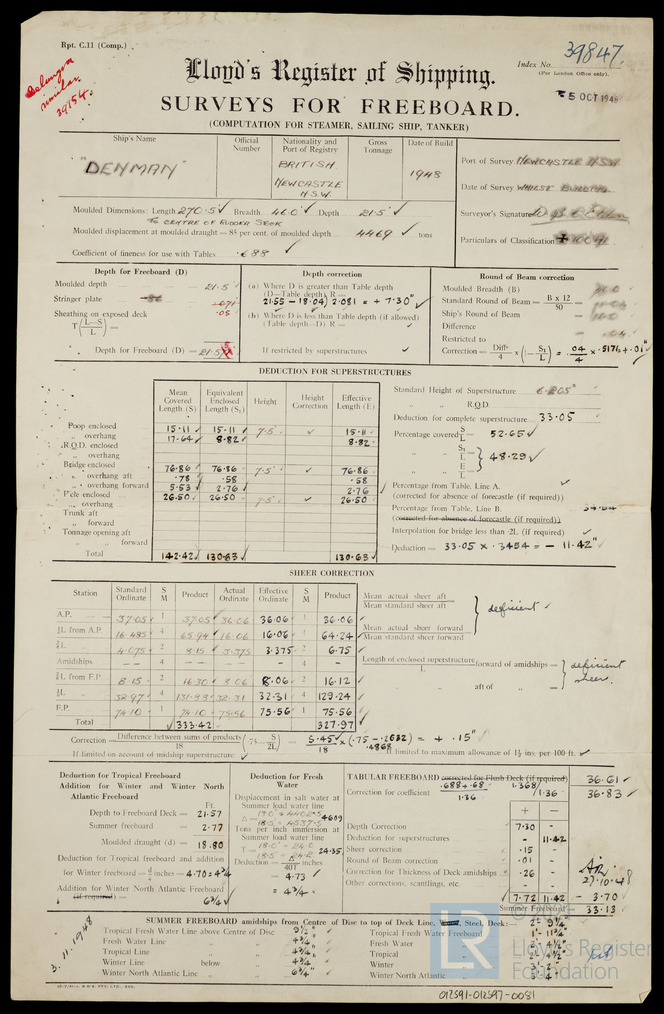 Rpt. C.11 (Comp.)
Index No. 39847.
(For London Office only).
5 OCT 1948
Lloyd's Register of Shipping.
SURVEYS FOR FREEBOARD.
(COMPUTATION FOR STEAMER, SAILING SHIP, TANKER)
Ship's Name
Official Number
Nationality and Port of Registry
Gross Tonnage
Date of Build
"DENMAN"
BRITISH
NEWCASTLE
N.S.W.
1948
Port of Survey NEWCASTLE N.S.W.
Date of Survey WHILST BUILDING
Surveyor's Signature
Particulars of Classification
Moulded Dimensions: Length 270.5 Breadth 46.0 Depth 21.5
TO CENTRE OF RUDDER STOCK
Moulded displacement at moulded draught = 85 per cent. of moulded depth 4469 tons
Coefficient of fineness for use with Tables .688
Depth for Freeboard (D)
Moulded depth 21.5
Stringer plate
Sheathing on exposed deck
T(L-S/L) =
Depth for Freeboard (D) =
Depth correction
(a) Where D is greater than Table depth
(D-Table depth) R =
21.55 - 18.04) 2.081 = + 7.30"
(b) Where D is less than Table depth (if allowed)
(Table depth-D) R =
If restricted by superstructures
Round of Beam correction
Moulded Breadth (B)
Standard Round of Beam = B x 12 / 50 =
Ship's Round of Beam =
Difference .04
Restricted to
Correction = Diffce/4 x (1 - S1/L) = .04/4 x .5171 = + .01"
DEDUCTION FOR SUPERSTRUCTURES
Mean Covered Length (S)
Equivalent Enclosed Length (S1)
Height
Height Correction
Effective Length (E)
Poop enclosed 15.11 15.11 7.5' 15.11
" overhang 17.64 8.82 8.82
R.Q.D. enclosed
" overhang
Bridge enclosed 76.86 76.86 7.5' 76.86
" overhang aft .78 .58 .58
" overhang forward 5.53 2.76 2.76
F'cle enclosed 26.50 26.50 7.5' 26.50
" overhang
Trunk aft
" forward
Tonnage opening aft
" " forward
Total 142.42 130.63 130.63
Standard Height of Superstructure 6.205'
" " R.Q.D.
Deduction for complete superstructure 33.05
Percentage covered S/L = 52.65
" " S1/L = } 48.29
" " E/L =
Percentage from Table, Line A.
(corrected for absence of forecastle (if required))
Percentage from Table, Line B. 34.54
(corrected for absence of forecastle (if required))
Interpolation for bridge less than .2L (if required)
Deduction = 33.05 x .3454 = - 11.42"
SHEER CORRECTION
Station
Standard Ordinate
S M
Product
Actual Ordinate
Effective Ordinate
S M
Product
A.P. 37.05 1 37.05 36.06 36.06 1 36.06
⅙L from A.P. 16.485 4 65.94 16.06 16.06 4 64.24
⅓L " 4.075 2 8.15 3.375 3.375 2 6.75
Amidships - - 4 - - - 4 -
⅓L from F.P. 8.15 2 16.30 8.06 8.06 2 16.12
⅙L " 32.97 4 131.88 32.31 32.31 4 129.24
F.P. 74.10 1 74.10 75.56 75.56 1 75.56
Total 333.42 327.97
Mean actual sheer aft
Mean standard sheer aft
Mean actual sheer forward
Mean standard sheer forward
} deficient
Length of enclosed superstructure forward of amidships =
L
" " aft of " =
} deficient sheer.
Correction = Difference between sums of products / 18 (.75 - S/2L) = 5.45/18 x (.75 - .2632) = + .15"
.4868
If limited on account of midship superstructure.
If limited to maximum allowance of 1½ ins. per 100 ft.
Deduction for Tropical Freeboard
Addition for Winter and Winter North Atlantic Freeboard
Ft.
Depth to Freeboard Deck = 21.57
Summer freeboard = 2.77
Moulded draught (d) = 18.80
Deduction for Tropical freeboard and addition
for Winter freeboard = d/4 inches = 4.70 = 4¾
Addition for Winter North Atlantic Freeboard
(if required) = 6¾
Deduction for Fresh Water
Displacement in salt water at
Summer load water line
Δ = 18.0' = 4402.5
18.5' = 4537.5 4609
Tons per inch immersion at
Summer load water line
T = 18.0' = 24.0
18.5' = 24.2 24.35
Deduction = Δ/40T inches
= 4.73
= 4¾"
TABULAR FREEBOARD corrected for Flush Deck (if required) 36.61
Correction for coefficient .688 + .68 / 1.36 1.368/1.36 36.83
+ -
Depth Correction 7.30 -
Deduction for superstructures - 11.42
Sheer correction .15 -
Round of Beam correction .01 -
Correction for Thickness of Deck amidships .26 -
Other corrections, scantlings, etc. - -
7.72 11.42 - 3.70
Summer Freeboard = 33.13
27.10.48
3.11.1948
SUMMER FREEBOARD amidships from Centre of Disc to top of Deck Line, Steel, Deck:— 2' 9¼"
Tropical Fresh Water Line above Centre of Disc 9½"
Fresh Water Line " " 4¾"
Tropical Line " " 4¾"
Winter Line below " 4¾"
Winter North Atlantic Line " " 6¾"
Tropical Fresh Water Freeboard 1' 11¾"
Fresh Water " 2' 4½"
Tropical " 2' 4½"
Winter "
Winter North Atlantic "
LR
Lloyd's Register
Foundation
012591-012597-0081